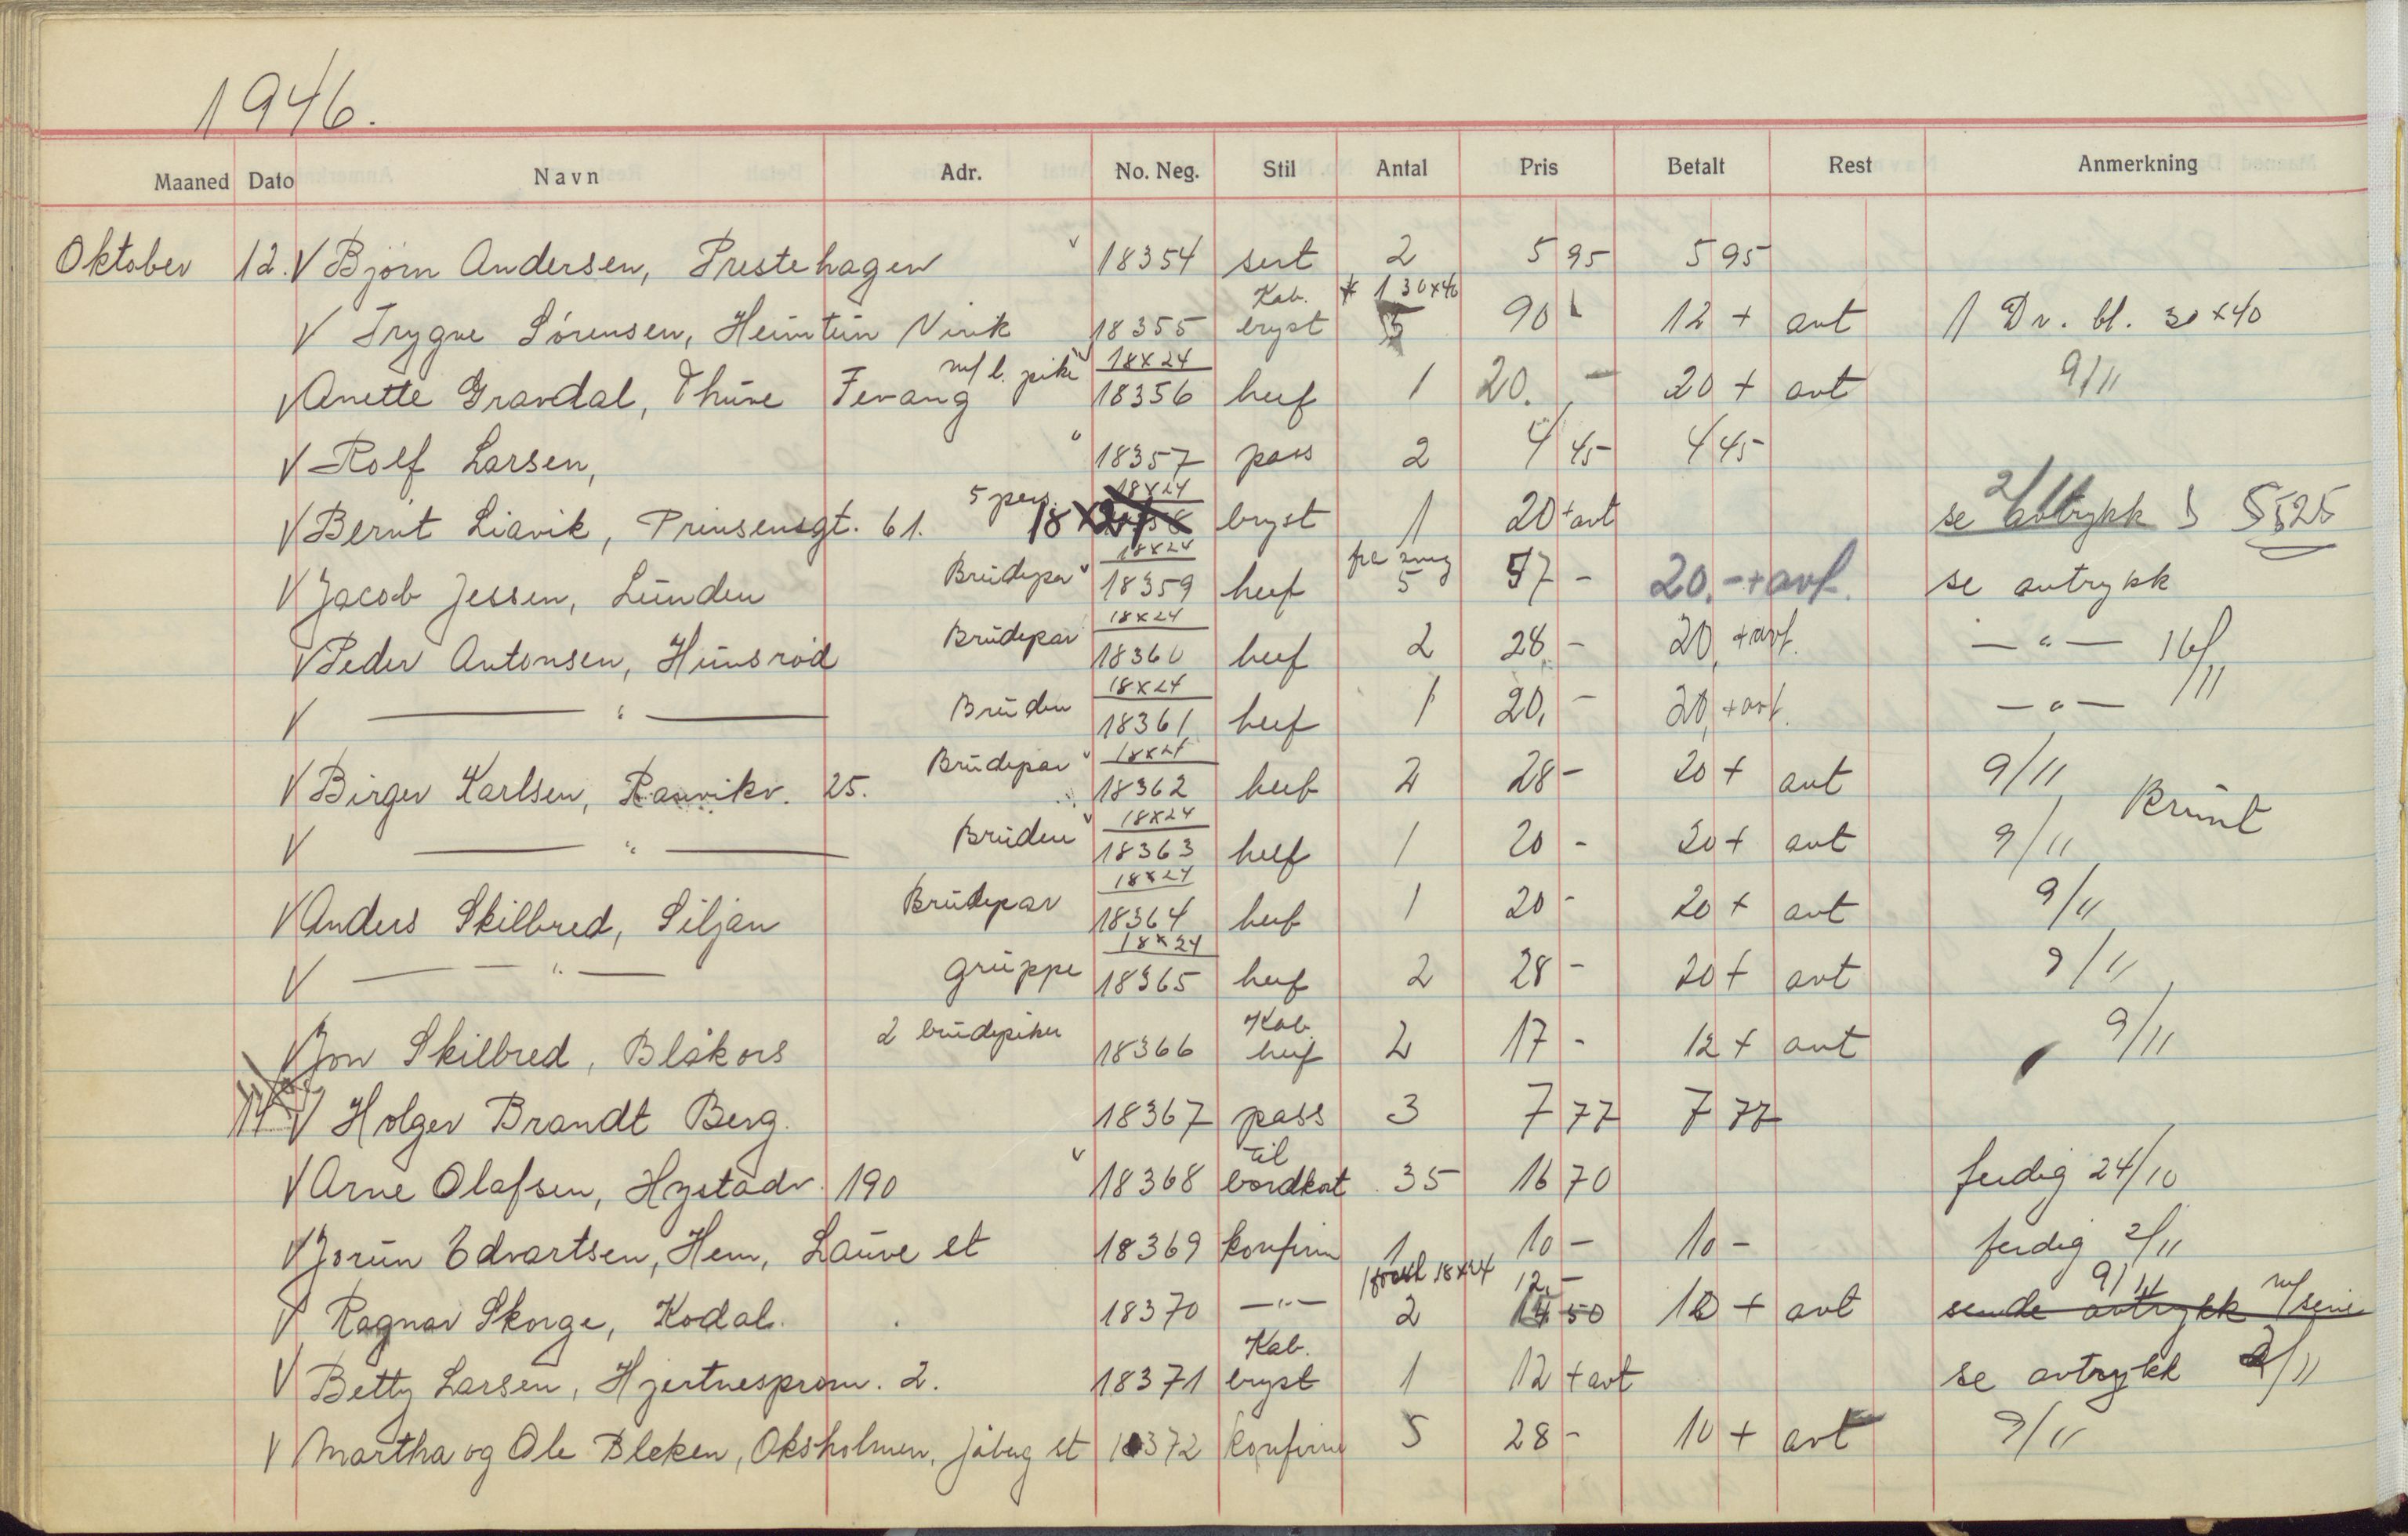 1946.
Maaned Dato Navn Adr. No. Neg. Stil Antal Pris Betalt Rest Anmerkning
Oktober 12. V Bjørn Andersen, Prestehagen 18354 sert 2 5 95 5 95
V Trygve Sørensen, Heimtun Virik 18355 Kab. bryst 1 30x40 5 90 - 12 + avt 1 Dv. bl. 30x40
V Anette Gravdal, Thure Fevang m/ l. pike 18x24 18356 heef 1 20. - 20 + avt 9/11
V Rolf Larsen, 18357 pass 2 4 45- 4 45-
V Bernt Liavik, Prinsensgt. 61. 5 pers. 18x24 18x24 bryst 1 20 + avt se avtrykk 2/11
V Jacob Jessen, Lunden Brudepar 18x24 18359 heef 5 57 - 20.- + avt. se avtrykk
V Peder Antonsen, Hunsrød Brudepar 18x24 18360 heef 2 28 - 20, + avt. — " — 16/11
V — " — Bruden 18x24 18361 heef 1 20, - 20, + avt. — " —
V Birger Karlsen, Ranvikv. 25. Brudepar 18x24 18362 heef 2 28 - 20 + avt 9/11
V — " — Bruden 18x24 18363 heef 1 20 - 20 + avt 9/11 Krimt
V Anders Skilbred, Siljan Brudepar 18x24 18364 heef 1 20 - 20 + avt 9/11
V — " — gruppe 18x24 18365 heef 2 28 - 20 + avt 9/11
V Jon Skilbred, Blåkors 2 brudepiker 18366 Kab. heef 2 17 - 12 + avt 9/11
14 V Holger Brandt Berg. 18367 pass 3 7 77 7 77
V Arne Olafsen, Hystadv. 190 18368 til bordkort 35 16 70 ferdig 24/10
V Jorun Edvartsen, Hem, Lauve st 18369 konfirm 1 10 - 10 - ferdig 2/11
V Ragnar Skorge, Kodal. 18370 — " — 18x24 2 12,- 14 50 10 + avt sende avtrykk m/ serie 9/11
V Betty Larsen, Hjertnesprom. 2. 18371 Kab. bryst 1 12 + avt se avtrykk 2/11
V Martha og Ole Bleken, Oksholmen, Jåberg st 18372 konfirm 5 28 - 10 + avt 9/11